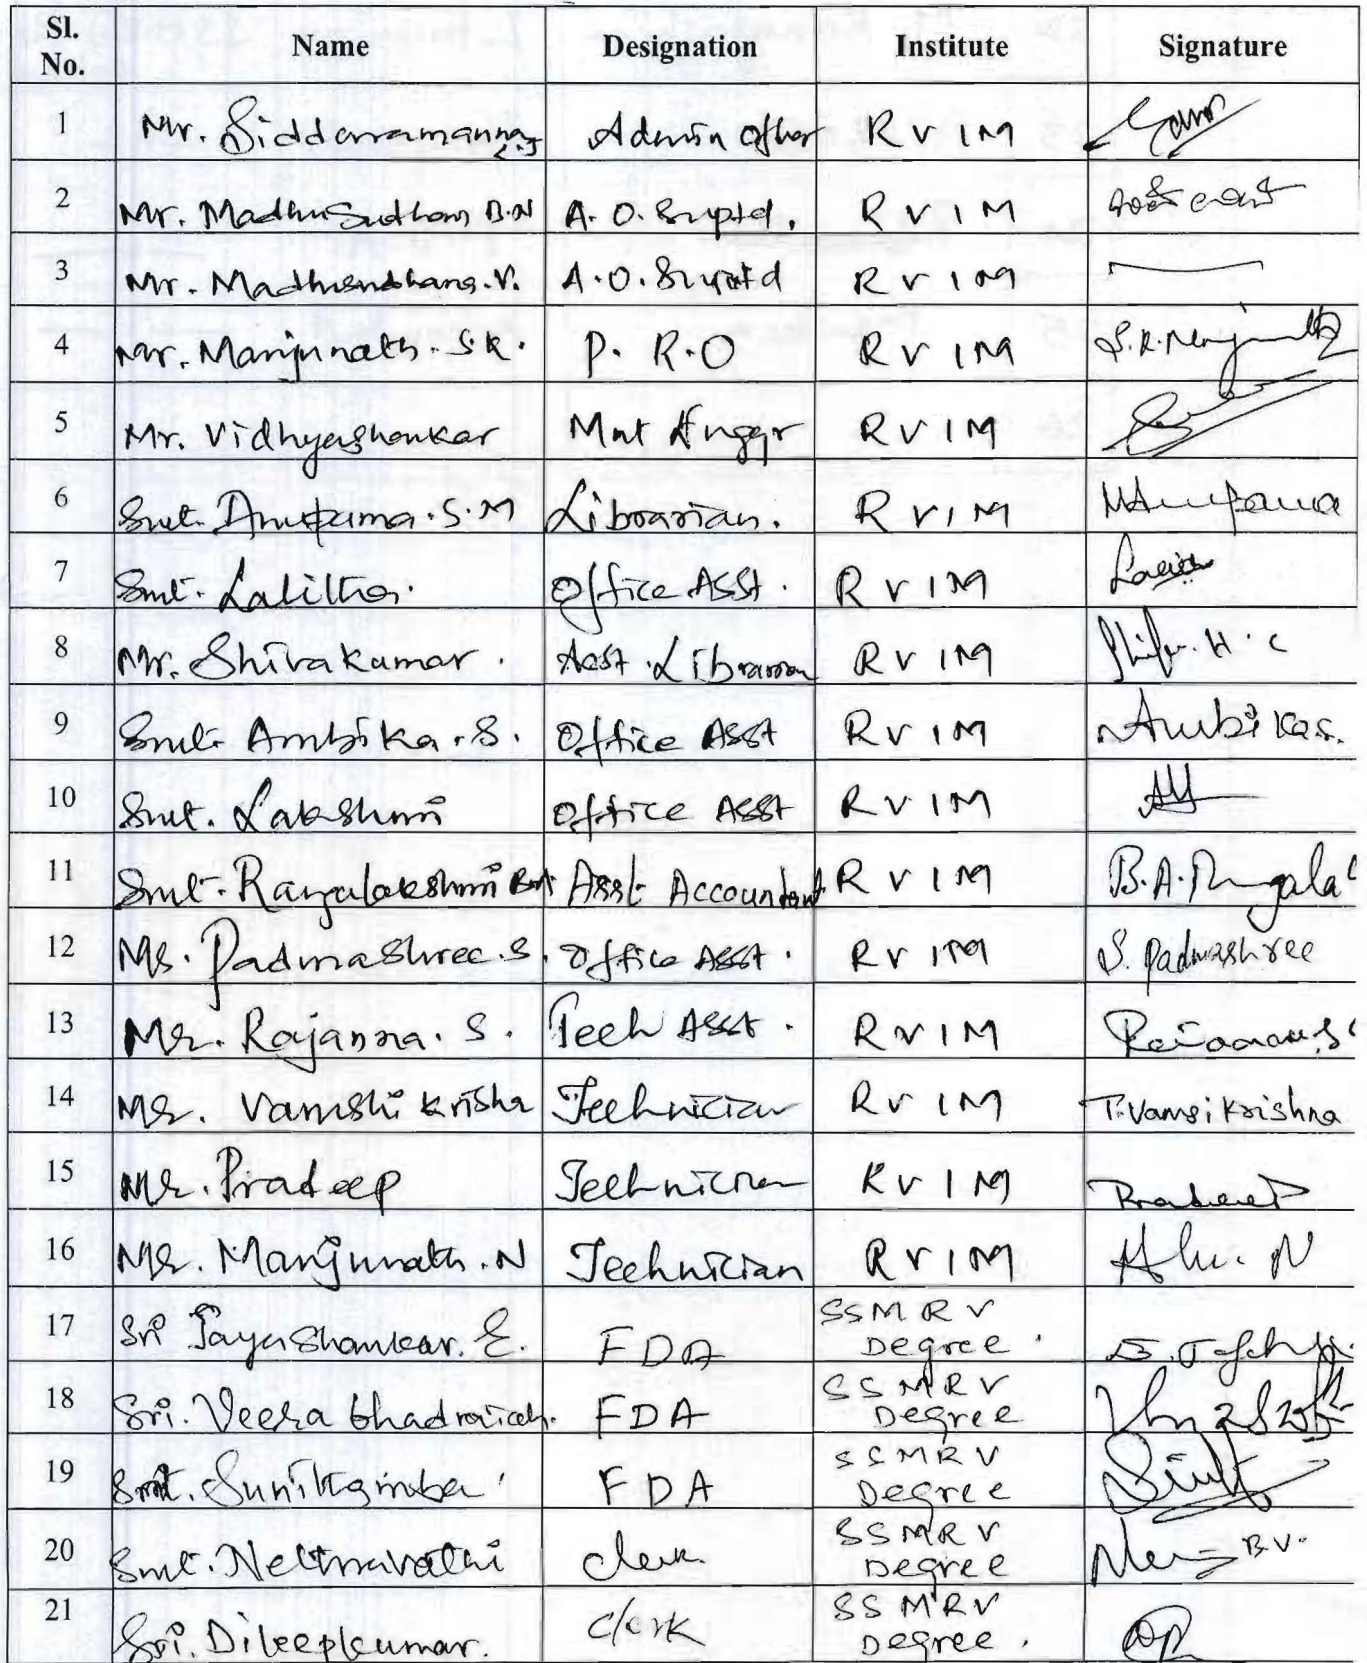 Sl. No. Name Designation Institute Signature
1 Mr. Siddaramanna Admin Officer R V I M
2 Mr. MadhuSudhan B.N A. O. Suptd. R V I M
3 Mr. Madhusudhana. V. A. O. Suptd R V I M
4 Mr. Manjunath. S.R. P. R. O R V I M S.R. Manjunath
5 Mr. Vidhyashankar R V I M
6 Smt. Anupama. S. M Librarian. R V I M Anupama
7 Smt. Lalitha. Office Asst. R V I M
8 Mr. Shivakumar. Asst. Librarian R V I M H. C
9 Smt. Ambika. S. Office Asst R V I M Ambika S.
10 Smt. Lakshmi Office Asst R V I M
11 Smt. Rangalakshmi Asst Accountant R V I M B.A.
12 Ms. Padmashree. S. Office Asst. R V I M S. Padmashree
13 Mr. Rajanna. S. Tech Asst. R V I M
14 Mr. Vamshi Krishna Technician R V I M T. Vamsi Krishna
15 Mr. Pradeep Technician R V I M Pradeep
16 Mr. Manjunath. N Technician R V I M
17 Sri Jayashankar. E. FDA SSMRV Degree.
18 Sri. Veerabhadraiah. FDA SSMRV Degree
19 Smt. FDA SSMRV Degree
20 Smt. Nethravathi Clerk SSMRV Degree B.V.
21 Sri. Dileepkumar. Clerk SSMRV Degree.